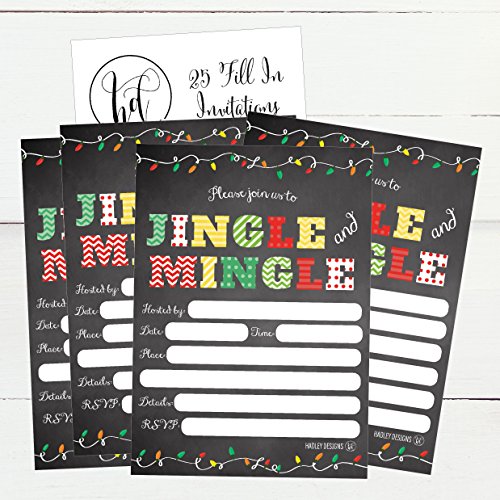 hd
25 Fill In
Invitations
JI
M
Hosted
Date:
Place
Details
RSVP
JIN
MI
Hosted by:
Date:
Place:
Details:
RSVP:
Please join us to
JINGLE and
MINGLE
Hosted by:
Date: Time:
Place:
Details:
RSVP:
HADLEY DESIGNS hd
to
LE and
GLE
HADLEY DESIGNS hd